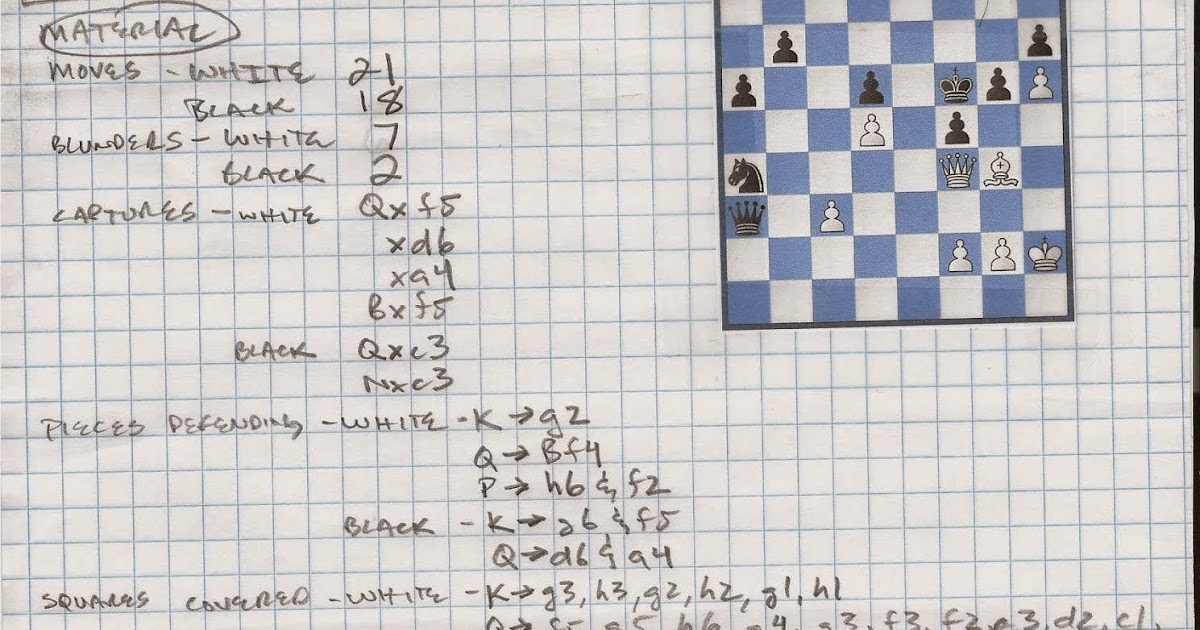 MATERIAL
MOVES - WHITE 21
BLACK 18
BLUNDERS - WHITE 7
BLACK 2
CAPTURES - WHITE Qxf5
xd6
xa4
Bxf5
BLACK Qxc3
Nxc3
PIECES DEFENDING - WHITE - K→g2
Q→Bf4
P→h6 & f2
BLACK - K→g6 & f5
Q→d6 & a4
SQUARES COVERED - WHITE - K→g3, h3, g2, h2, g1, h1
Q→ f5, g5, h6, g4, g3, f3, f2, e3, d2, c1,